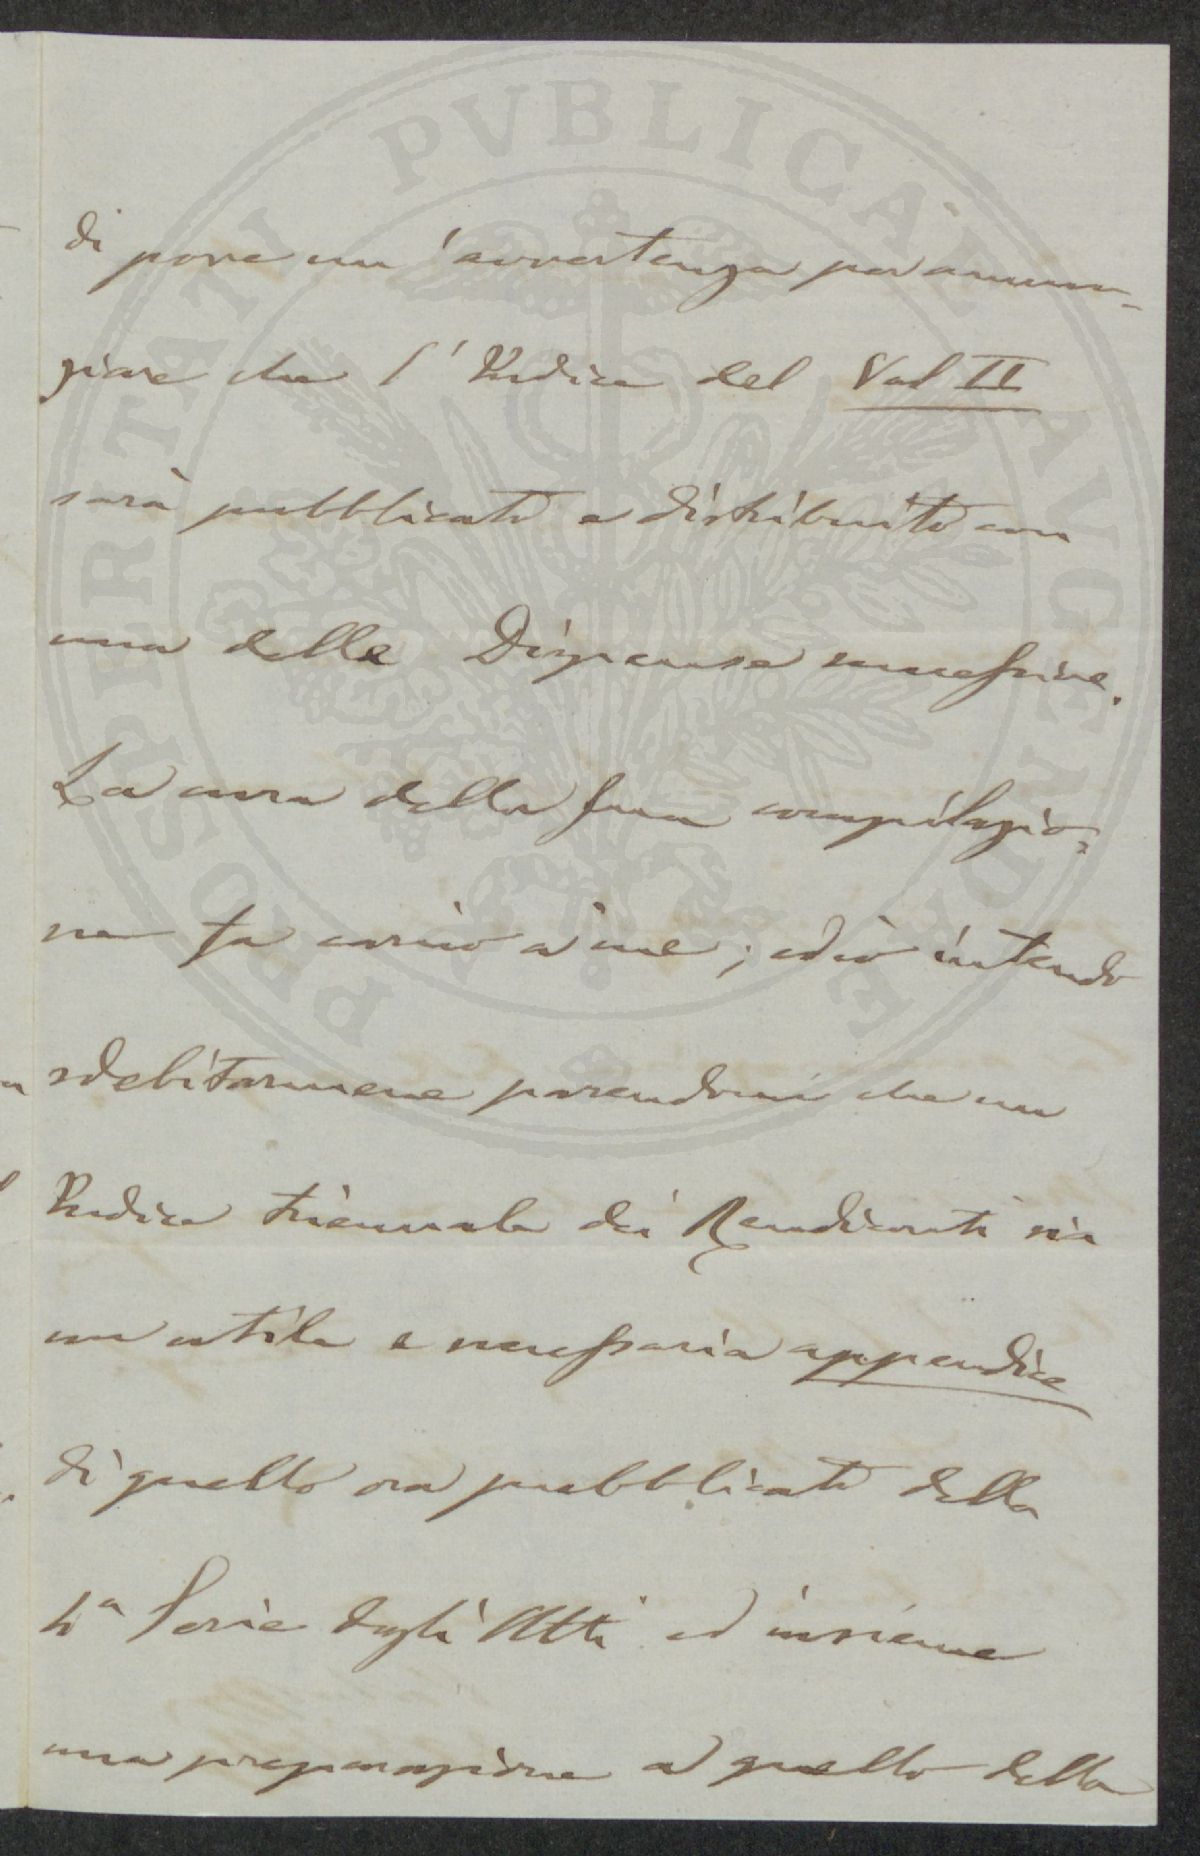 di porre un'avvertenza per annun-
ziare che l'Indice del Vol II
sarà pubblicato e distribuito con
una delle Dispense successive.
La cura della sua compilazio-
ne fa carico a me; ed io intendo
sdebitarmene parendomi che un
Indice triennale dei Rendiconti sia
un utile e necessaria appendice
di quello ora pubblicato della
4a Serie degli Atti ed insieme
una preparazione a quello della
PROSPERITATI PVBLICAE AVGENDAE